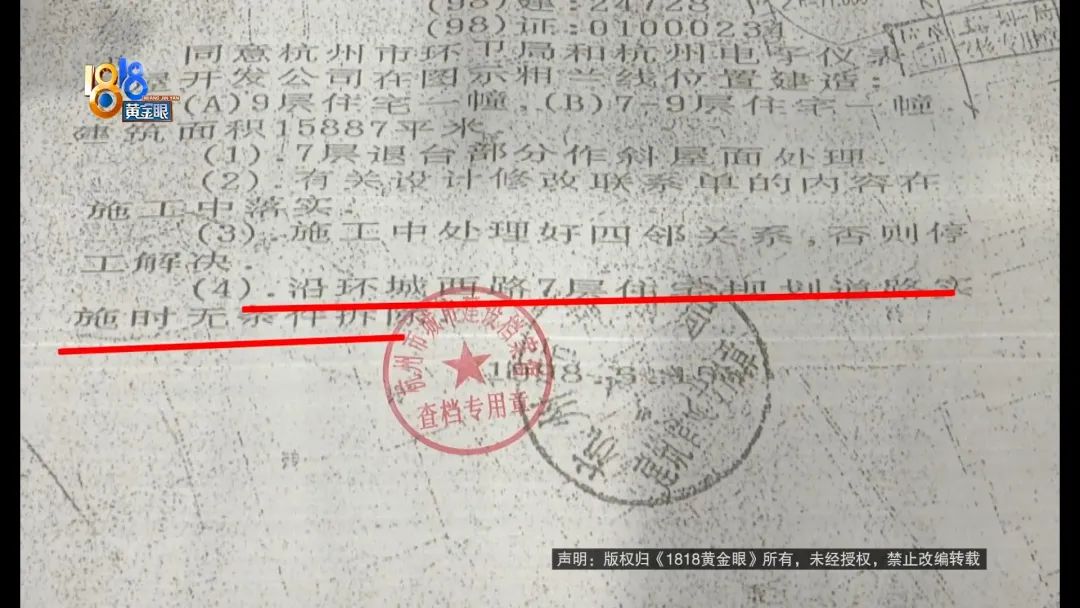 (98)建:24728
(98)证:01000234
同意杭州市环卫局和杭州电车仪表
屋开发公司在图示粗兰线位置建:
(A)9层住宅一幢,(B)7-9层住宅一幢
建筑面积15887平米.
(1).7层退台部分作斜屋面处理.
(2).有关设计修改联系单的内容在
施工中落实.
(3).施工中处理好四邻关系,否则停
工解决.
(4).沿环城西路7层住宅规划道路实
施时无条件拆除
杭州市城市建设档案馆
查档专用章
1818
黄金眼
声明：版权归《1818黄金眼》所有，未经授权，禁止改编转载